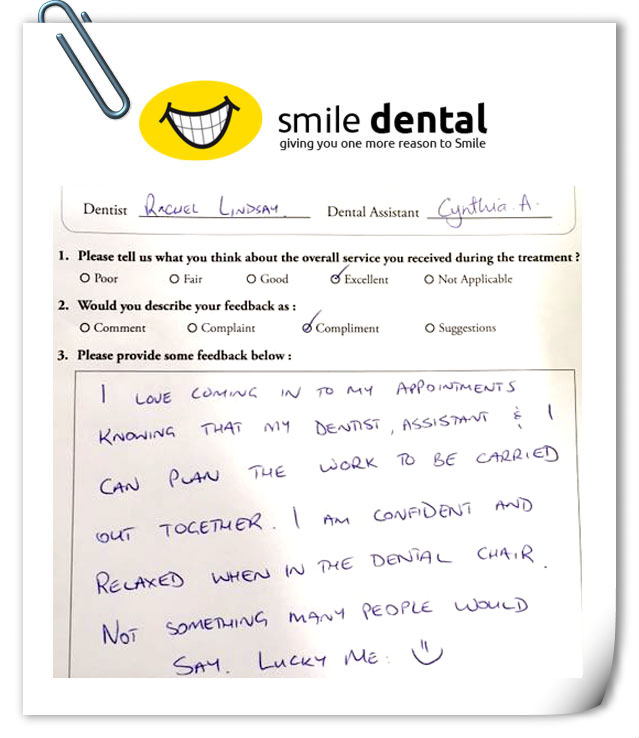 smile dental
giving you one more reason to Smile
Dentist RACHEL LINDSAY Dental Assistant Cynthia A.
1. Please tell us what you think about the overall service you received during the treatment ?
Poor Fair Good Excellent Not Applicable
2. Would you describe your feedback as :
Comment Complaint Compliment Suggestions
3. Please provide some feedback below :
I LOVE COMING IN TO MY APPOINTMENTS
KNOWING THAT MY DENTIST, ASSISTANT & I
CAN PLAN THE WORK TO BE CARRIED
OUT TOGETHER. I AM CONFIDENT AND
RELAXED WHEN IN THE DENTAL CHAIR.
NOT SOMETHING MANY PEOPLE WOULD
SAY. LUCKY ME.